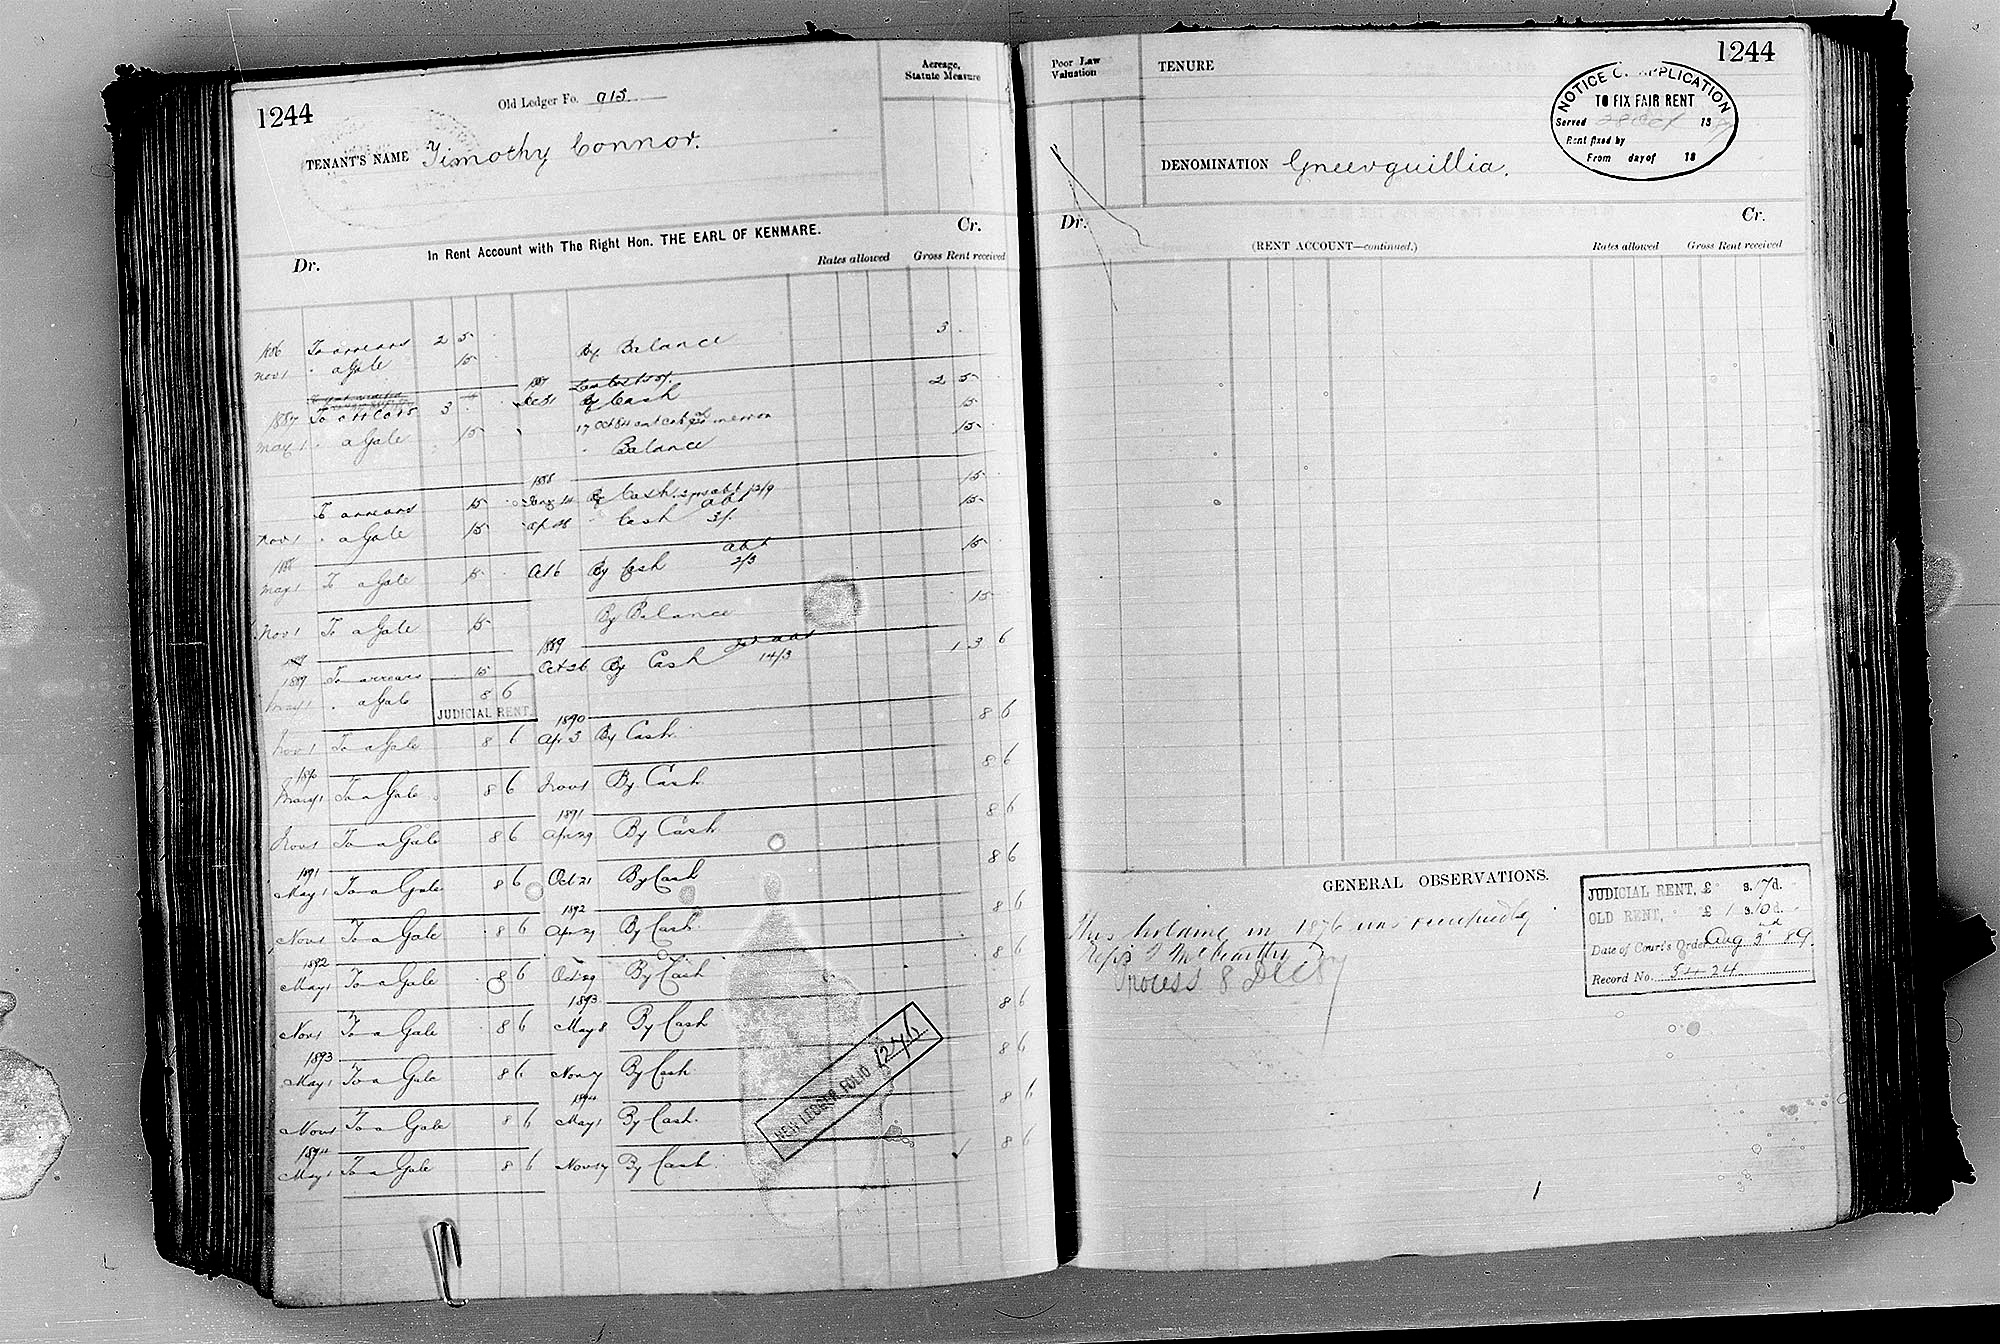 1244
Old Ledger Fo. 915.
TENANT'S NAME Timothy Connor.
Acreage, Statute Measure
In Rent Account with The Right Hon. THE EARL OF KENMARE.
Dr.
Cr.
Rates allowed Gross Rent received
1886 To arrears 2 5 By Balance 3
Nov 1 " a Gale 15
1887 To arrears 3 1887 Dec 31 By Cash 2 5
May 1 " a Gale 15 17 Oct 15
Balance 15
1888
To arrears 15 By Cash 12/9 15
Nov 1 " a Gale 15 Ap 28 " Cash abt 3/. 15
1888
May 1 To a Gale 15 Oct 6 By Cash abt 2/3 15
Nov 1 To a Gale 15 By Balance 15
1889 To arrears 15 1889 Oct 26 By Cash 14/3 1 3 6
May 1 " a Gale 8 6
JUDICIAL RENT.
Nov 1 To a Gale 8 6 1890 Apr 3 By Cash 8 6
1890
May 1 To a Gale 8 6 Nov 1 By Cash 8 6
Nov 1 To a Gale 8 6 1891 Apr 29 By Cash 8 6
1891
May 1 To a Gale 8 6 Oct 21 By Cash 8 6
Nov 1 To a Gale 8 6 1892 Apr 29 By Cash 8 6
1892
May 1 To a Gale 8 6 Oct 29 By Cash 8 6
Nov 1 To a Gale 8 6 1893 May 8 By Cash 8 6
1893
May 1 To a Gale 8 6 Nov 7 By Cash 8 6
Nov 1 To a Gale 8 6 1894 May 1 By Cash 8 6
1894
May 1 To a Gale 8 6 Nov 17 By Cash 8 6
NEW LEDGER FOLIO 1246
1244
Poor Law Valuation
TENURE
DENOMINATION Gneevguillia.
NOTICE OF APPLICATION
TO FIX FAIR RENT
Served 28 Oct 1887
Rent fixed by
From day of 18
Dr.
(RENT ACCOUNT—continued.)
Cr.
Rates allowed Gross Rent received
GENERAL OBSERVATIONS.
This holding in 1876 was occupied by
Reps J McCarthy
Process 8 Dec 87
JUDICIAL RENT, £ s.17 d.
OLD RENT, £ 1 s.10 d.
Date of Court's Order Aug 3rd 89.
Record No. 5424